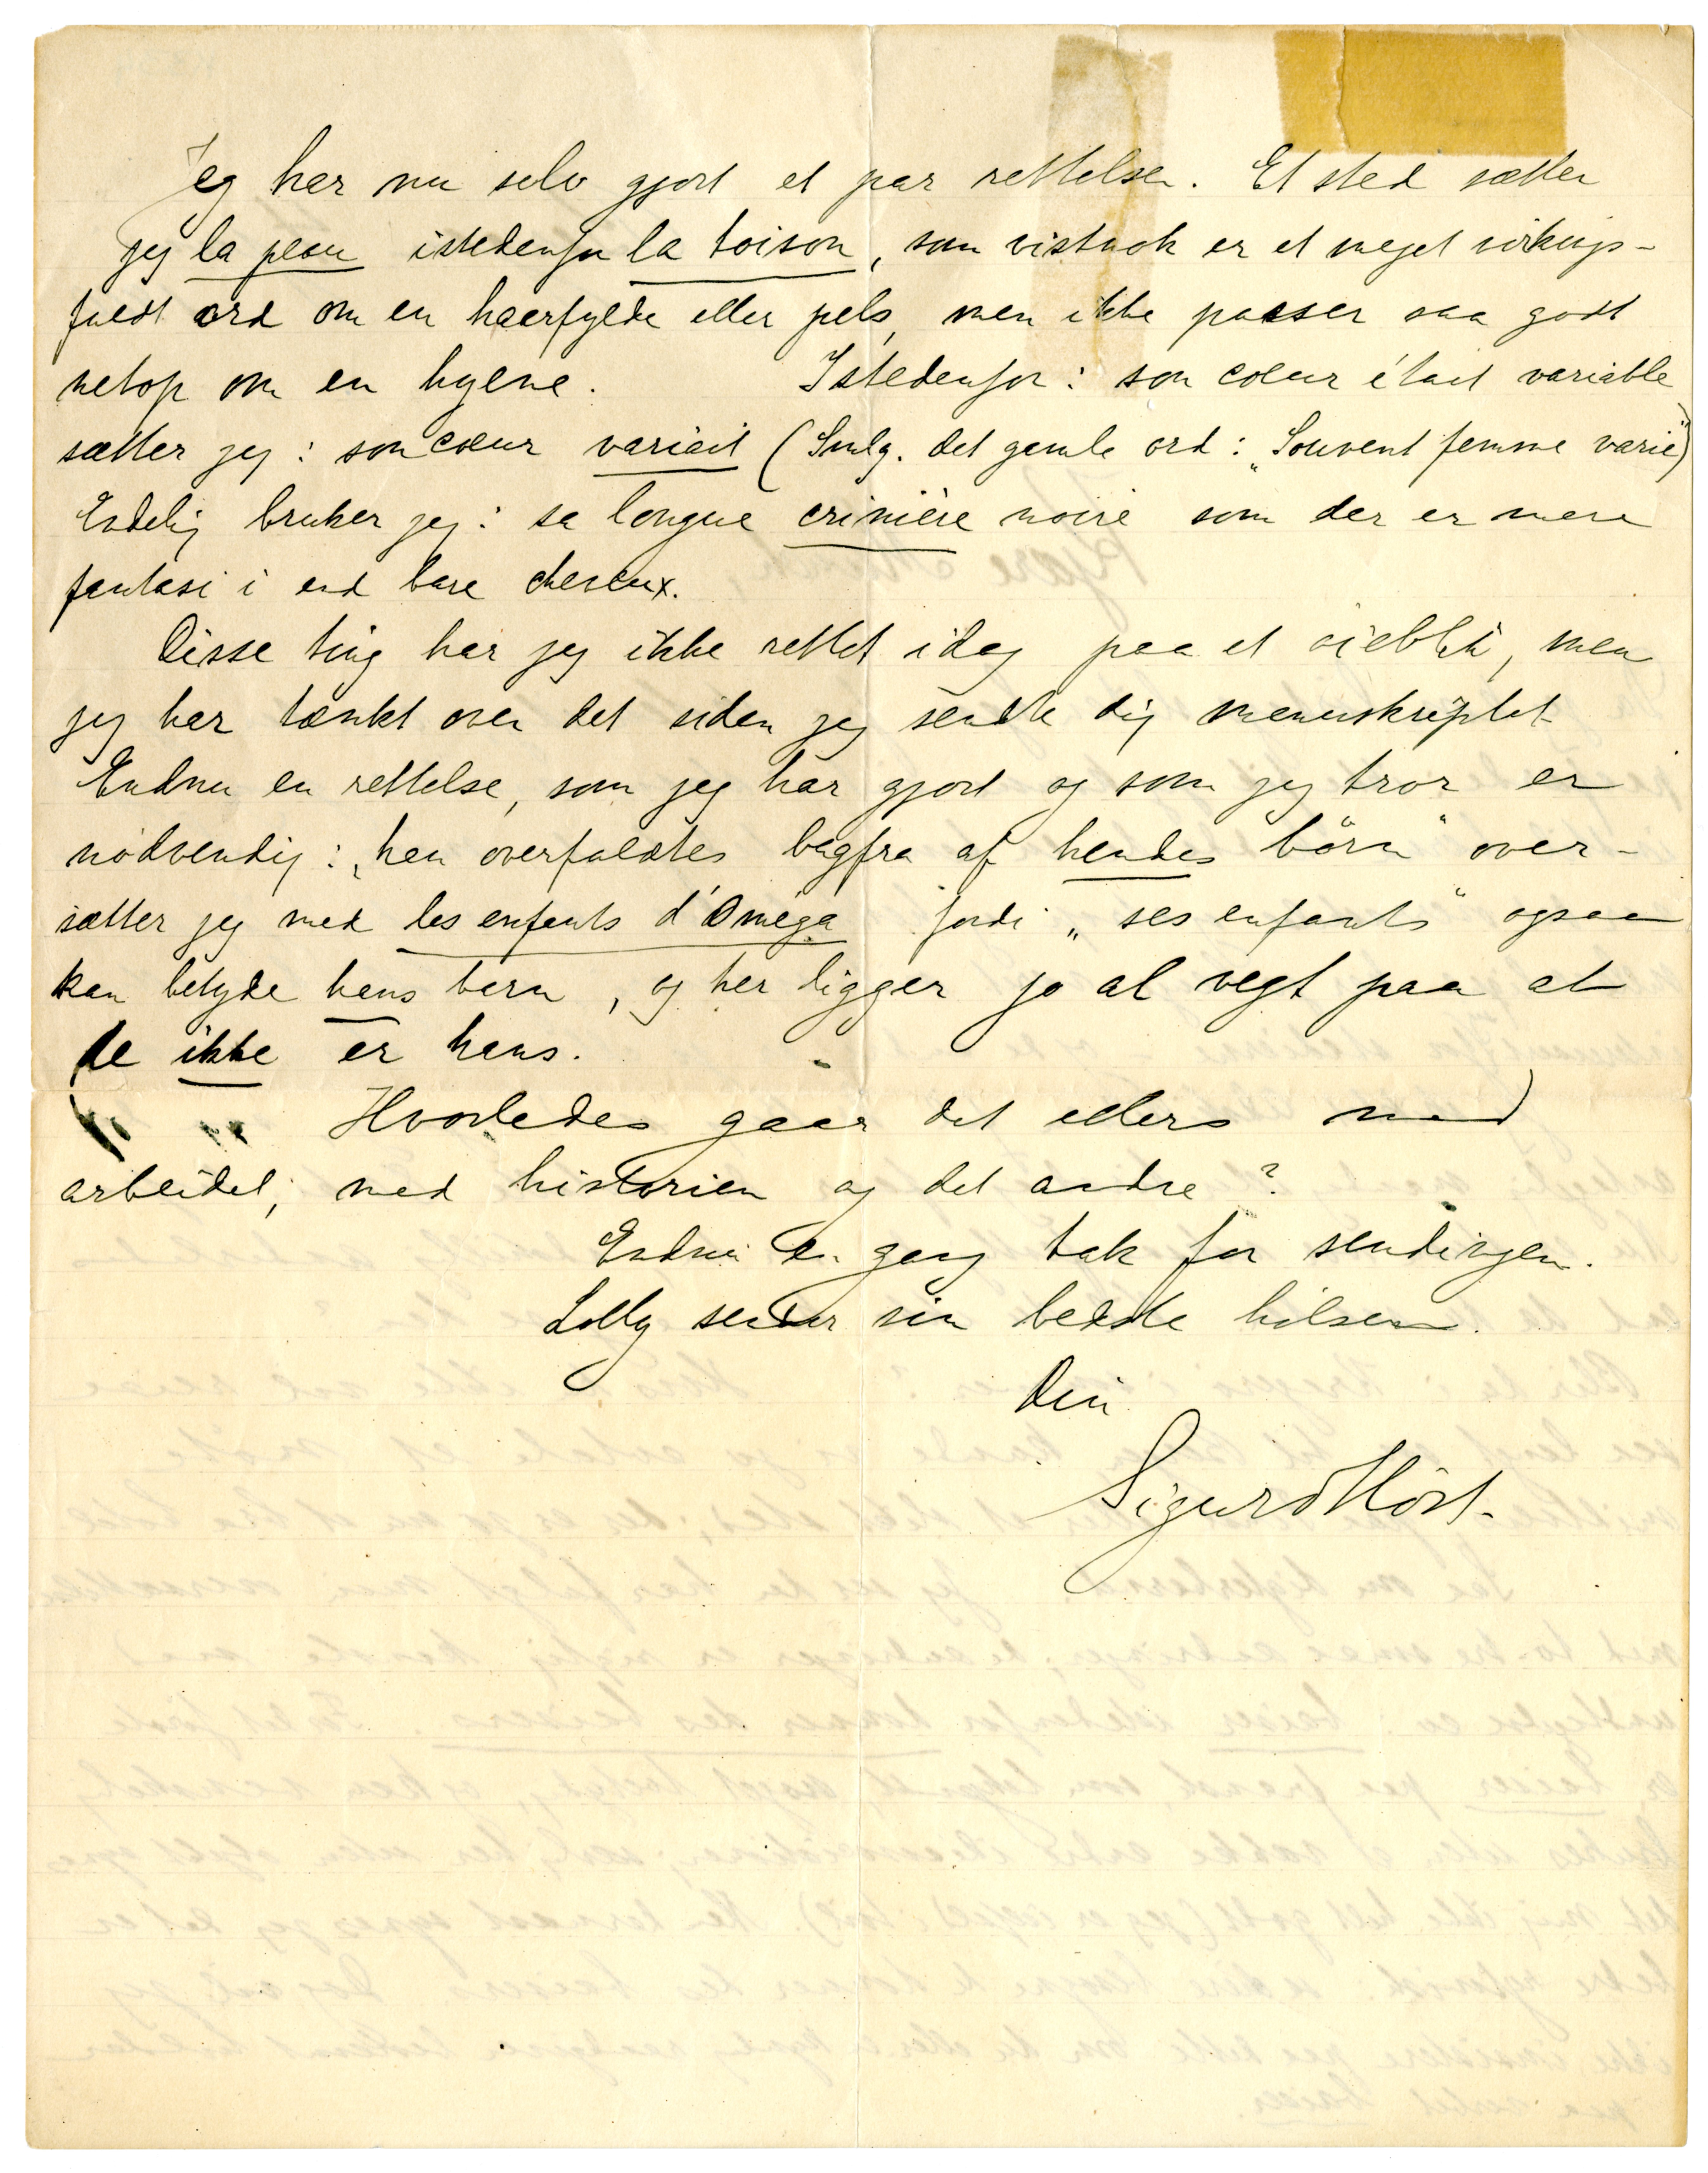 Jeg har nu selv gjort et par rettelser. Et sted sætter
jeg la peau istedenfor la toison, som vistnok er et meget virknings-
fuldt ord om en haarfylde eller pels, men ikke passer saa godt
netop om en hyene. Istedenfor: son coeur était variable
sætter jeg: son coeur variait (Smlg. det gamle ord: „Souvent femme varie”)
Endelig bruker jeg: sa longue crinière noire som der er mere
fantasi i end bare cheveux.
Disse ting har jeg ikke rettet idag paa et øieblik, men
jeg har tænkt over det siden jeg sendte dig manuskriptet
Endnu en rettelse, som jeg har gjort og som jeg tror er
nødvendig: „han overfaldtes bagfra af hendes börn” over-
sætter jeg med les enfants d'Oméga fordi „ses enfants” ogsaa
kan betyde hans barn, og her ligger jo al vegt paa at
de ikke er hans.
Hvorledes gaar det ellers med
arbeidet, med historien og det andre?
Endnu en gang tak for sendingen.
Lolly sender sin bedste hilsen.
Din
Sigurd Höst.